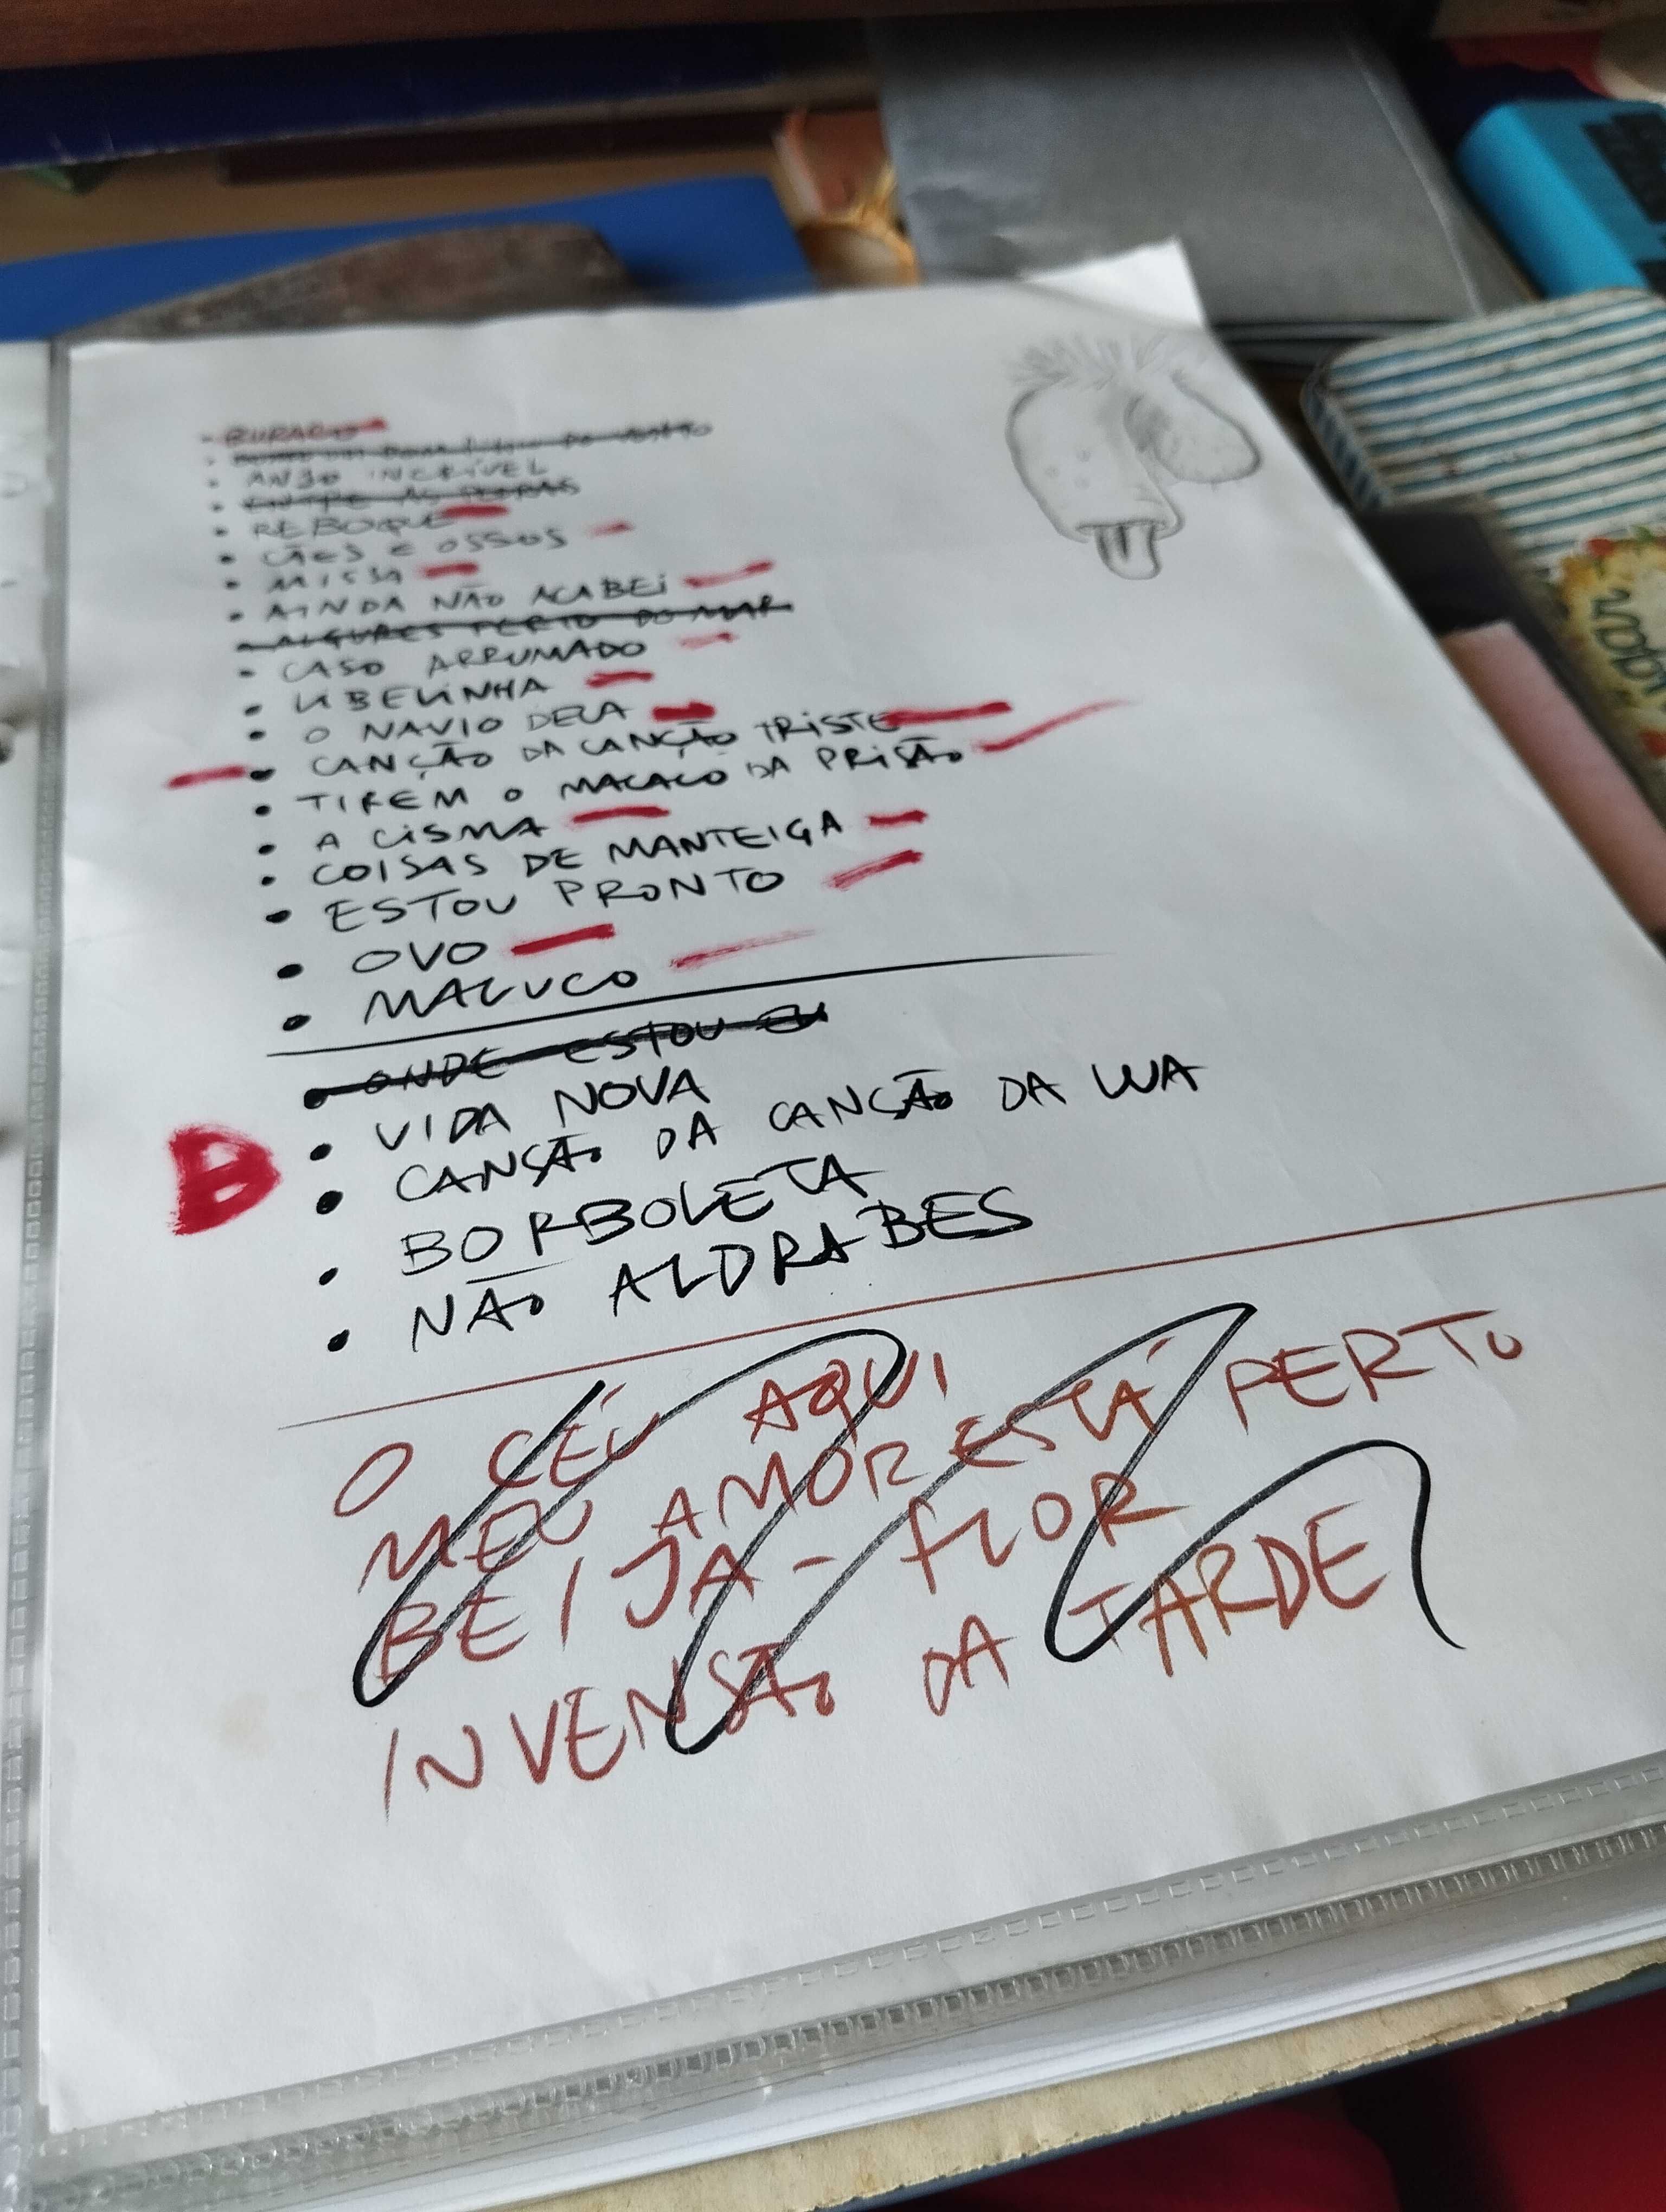 • BURACO
• ANJO INCRÍVEL
• ENTRE AS PEDRAS
• REBOQUE
• CÃES E OSSOS
• MISSA
• AINDA NÃO ACABEI
• ALGURES PERTO DO MAR
• CASO ARRUMADO
• LIBELINHA
• O NAVIO DELA
• CANÇÃO DA CANÇÃO TRISTE
• TIREM O MACACO DA PRISÃO
• A CISMA
• COISAS DE MANTEIGA
• ESTOU PRONTO
• OVO
• MALUCO
• ONDE ESTOU EU
• VIDA NOVA
• CANSÃO DA CANSÃO DA LUA
• BORBOLETA
• NÃO ALDRABES
O CÉU AQUI
MEU AMOR ESTÁ PERTO
BEIJA-FLOR
INVENSÃO DA TARDE